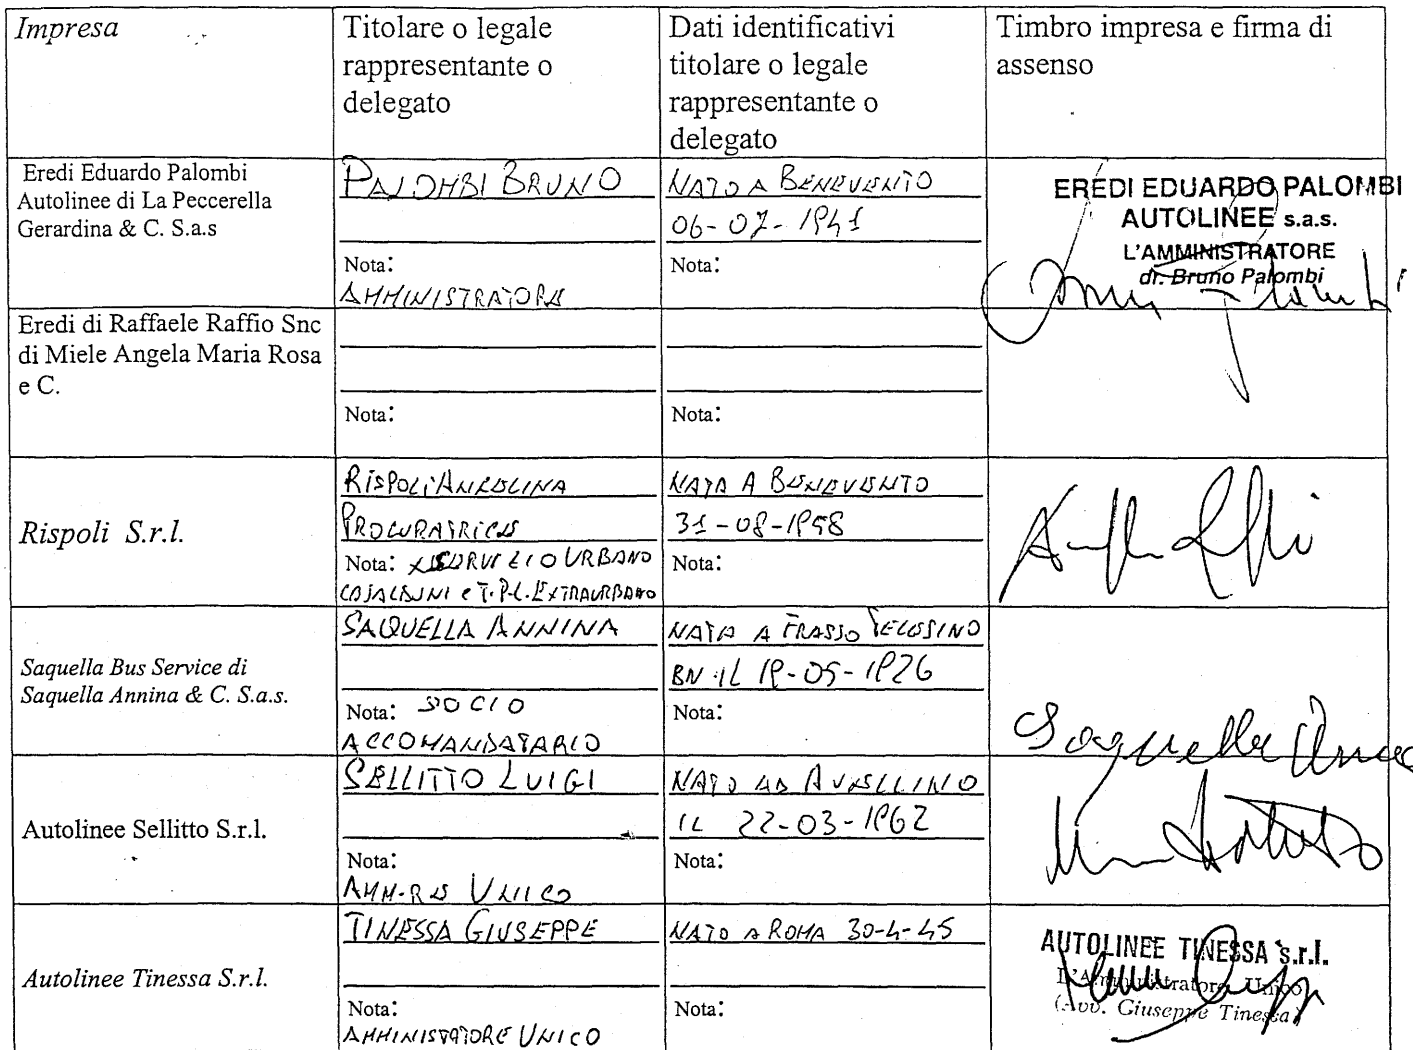 Impresa
Titolare o legale
rappresentante o
delegato
Dati identificativi
titolare o legale
rappresentante o
delegato
Timbro impresa e firma di
assenso
Eredi Eduardo Palombi
Autolinee di La Peccerella
Gerardina & C. S.a.s
PALOMBI BRUNO
Nota:
AMMINISTRATORE
NATO A BENEVENTO
06-07-1941
Nota:
EREDI EDUARDO PALOMBI
AUTOLINEE s.a.s.
L'AMMINISTRATORE
dr. Bruno Palombi
Eredi di Raffaele Raffio Snc
di Miele Angela Maria Rosa
e C.
Nota:
Nota:
Rispoli S.r.l.
RISPOLI ANGELINA
PROCURATRICE
Nota: X SERVIZIO URBANO
CASALDUNI e T.P.L. EXTRAURBANO
NATA A BENEVENTO
31-08-1958
Nota:
Saquella Bus Service di
Saquella Annina & C. S.a.s.
SAQUELLA ANNINA
Nota: SOCIO
ACCOMANDATARIO
NATA A FRASSO TELESINO
BN IL 19-05-1926
Nota:
Saquella Annina
Autolinee Sellitto S.r.l.
SELLITTO LUIGI
Nota:
AMM.RE UNICO
NATO AD AVELLINO
IL 22-03-1962
Nota:
Autolinee Tinessa S.r.l.
TINESSA GIUSEPPE
Nota:
AMMINISTATORE UNICO
NATO A ROMA 30-4-45
Nota:
AUTOLINEE TINESSA s.r.l.
L'Amministratore Unico
(Avv. Giuseppe Tinessa)